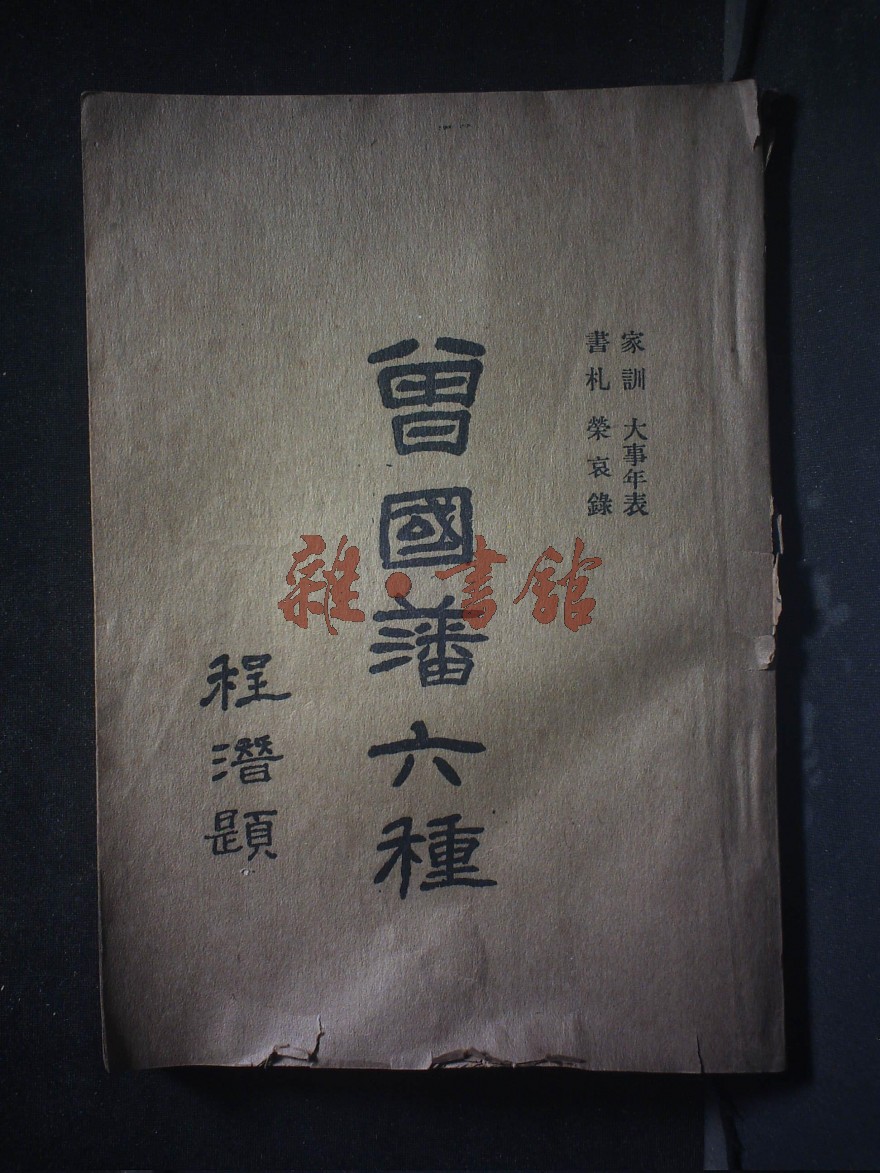 家訓 大事年表
書札 榮哀錄
曾國藩六種
程潛題
雜·書館